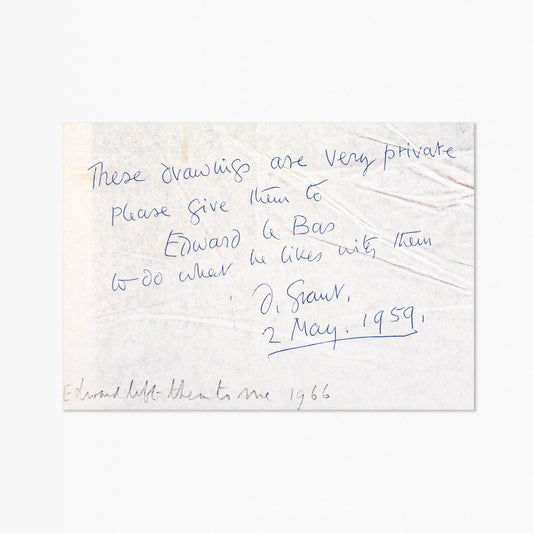 These drawings are very private
please give them to
Edward le Bas
to do what he likes with them
D. Grant.
2 May. 1959.
Edward left them to me 1966